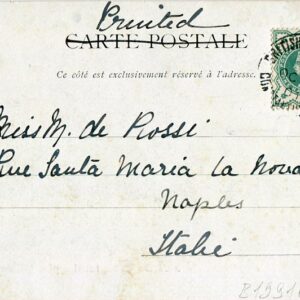 Printed
CARTE POSTALE
Ce côté est exclusivement réservé à l'adresse.
BRITISH
Miss M. de Rossi
Rue Santa Maria la Nova
Naples
Italie